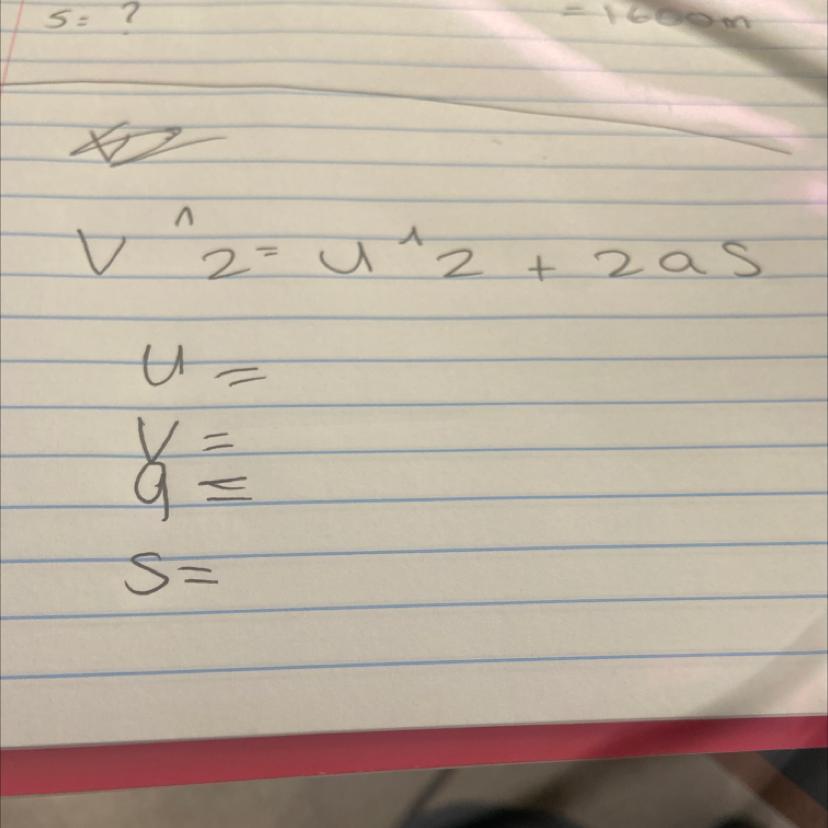 s = ?
= 1600m
V ^ 2 = u ^ 2 + 2 a s
u =
v =
a =
s =